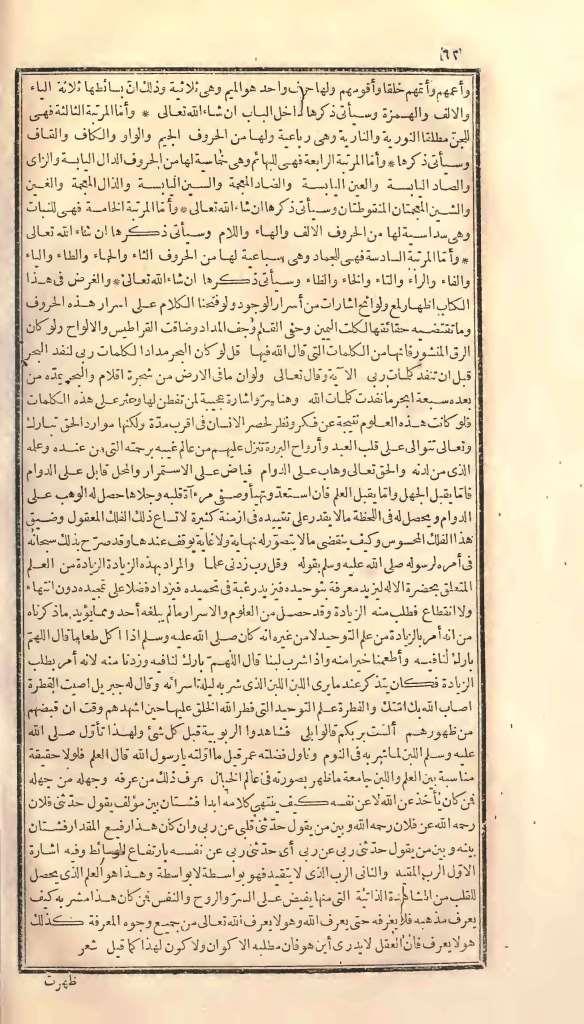 (٦٢)
وأعمهم وأتمهم خلقا وأقومهم ولها حرف واحد هو الميم وهى ثلاثية وذلك أن بسائطها ثلاثة الياء
والالف والهمزة وسيأتى ذكرها داخل الباب ان شاء الله تعالى * وأما المرتبة الثالثة فهى
للجن مطلقا النورية والنارية وهى رباعية ولها من الحروف الجيم والواو والكاف والقاف
وسيأتى ذكرها * وأما المرتبة الرابعة فهى للبهائم وهى خماسية لها من الحروف الدال اليابسة والزاى
والصاد اليابسة والعين اليابسة والضاد المعجمة والسين اليابسة والذال المعجمة والغين
والشين المعجمتان المنقوطتان وسيأتى ذكرها ان شاء الله تعالى * وأما المرتبة الخامسة فهى للنبات
وهى سداسية لها من الحروف الالف والهاء واللام وسيأتى ذكرها ان شاء الله تعالى
* وأما المرتبة السادسة فهى للجماد وهى سباعية لها من الحروف الباء والحاء والطاء والياء
والفاء والراء والتاء والثاء والخاء والظاء وسيأتى ذكرها ان شاء الله تعالى * والغرض فى هذا
الكتاب اظهار لمع ولوائح اشارات من أسرار الوجود ولو فتحنا الكلام على اسرار هذه الحروف
وما تقتضيه حقائقها لكلت اليمين وحفى القلم وجف المداد وضاقت القراطيس والالواح ولو كان
الرق المنشور فانها من الكلمات التى قال الله فيها قل لو كان البحر مدادا لكلمات ربى لنفد البحر
قبل أن تنفد كلمات ربى الآية وقال تعالى ولو أن ما فى الارض من شجرة اقلام والبحر يمده من
بعده سبعة ابحر ما نفدت كلمات الله وهنا سر واشارة عجيبة لمن تفطن لها وعثر على هذه الكلمات
فلو كانت هذه العلوم نتيجة عن فكر ونظر لحصر الانسان فى اقرب مدة ولكنها موارد الحق تبارك
وتعالى تتوالى على قلب العبد وأرواحه البررة تنزل عليهم من عالم غيبه برحمته التى من عنده وعلمه
الذى من لدنه والحق تعالى وهاب على الدوام فياض على الاستمرار والمحل قابل على الدوام
فاما يقبل الجهل واما يقبل العلم فان استعد وتهيأ وصفى مرءآة قلبه وجلاها حصل له الوهب على
الدوام ويحصل له فى اللحظة مالا يقدر على تقييده فى ازمنة كثيرة لاتساع ذلك الفلك المعقول وضيق
هذا الفلك المحسوس وكيف ينقضى مالا يتصور له نهاية ولا غاية يوقف عندها وقد صرح بذلك سبحانه
فى أمره لرسوله صلى الله عليه وسلم بقوله وقل رب زدنى علما والمراد بهذه الزيادة الزيادة من العلم
المتعلق بحضرة الاله ليزيد معرفة بتوحيده فيزيد رغبة فى تحميده فيزداد فضلا على تحميده دون انتهاء
ولا انقطاع فطلب منه الزيادة وقد حصل من العلوم والاسرار مالم يبلغه أحد ومما يؤيد ما ذكرناه
من انه أمر بالزيادة من علم التوحيد لا من غيره انه كان صلى الله عليه وسلم اذا اكل طعاما قال اللهم
بارك لنا فيه وأطعمنا خيرا منه واذا شرب لبنا قال اللهم بارك لنا فيه وزدنا منه لانه أمر بطلب
الزيادة فكان يتذكر عند ما يرى اللبن اللبن الذى شربه ليلة اسرائه وقال له جبريل اصبت الفطرة
اصاب الله بك امتك والفطرة علم التوحيد التى فطر الله الخلق عليها حين اشهدهم وقت ان قبضهم
من ظهورهم ألست بربكم قالوا بلى فشاهدوا الربوبية قبل كل شئ ولهذا تأول صلى الله
عليه وسلم اللبن لما شربه فى النوم وناول فضلته عمر قيل ما اولته يا رسول الله قال العلم فلولا حقيقة
مناسبة بين العلم واللبن جامعة ما ظهر بصورته فى عالم الخيال عرف ذلك من عرفه وجهله من جهله
فمن كان يأخذ عن الله لا عن نفسه كيف ينتهى كلامه ابدا فشتان بين مؤلف يقول حدثنى فلان
رحمه الله عن فلان رحمه الله وبين من يقول حدثنى قلبى عن ربى وان كان هذا رفيع المقدار فشتان
بينه وبين من يقول حدثنى ربى عن ربى أى حدثنى ربى عن نفسه بارتفاع الوسائط وفيه اشارة
الاول الرب المقيد والثانى الرب الذى لا يتقيد فهو بواسطة لا بواسطة وهذا هو العلم الذى يحصل
للقلب من المشاهدة الذاتية التى منها يفيض على السر والروح والنفس فمن كان هذا مشربه كيف
يعرف مذهبه فلا تعرفه حتى يعرف الله وهو لا يعرف الله تعالى من جميع وجوه المعرفة كذلك
هو لا يعرف فان العقل لا يدرى أين هو فان مطلبه الاكوان ولا كون لهذا كما قيل شعر
ظهرت